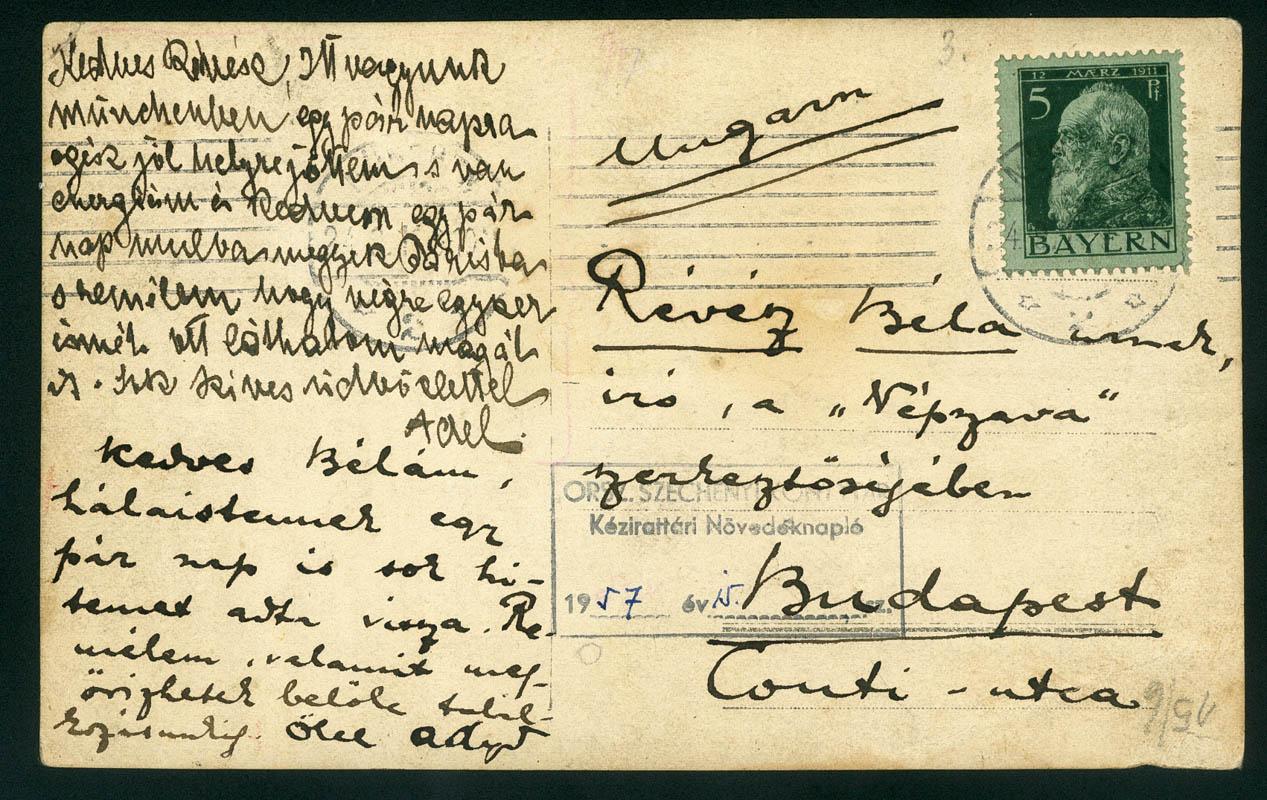 Kedves Révész, Itt vagyunk
münchenben, egy pár napra
egész jól helyrejöttem s van
energiám és kedvem egy pár
nap mulva megyek Párisba
s remélem hogy végre egyszer
ismét ott láthatom magát
is. Sok szives üdvözlettel
Adél.
Kedves Bélám,
hálaistennek egy
pár nap is sok hi-
temet adta vissza. Re-
mélem, valamit meg-
őrizhetek belőle talál-
kozásunkig. Ölel adyd
3.
Ungarn
12 MÆRZ 1911
5 Pf
BAYERN
Révész Béla urnak,
iró, a „Népszava"
szerkesztőségében
ORSZ. SZÉCHÉNYI KÖNYVTÁR
Kézirattári Növedéknapló
1957 év sz.
Budapest
Conti-utca